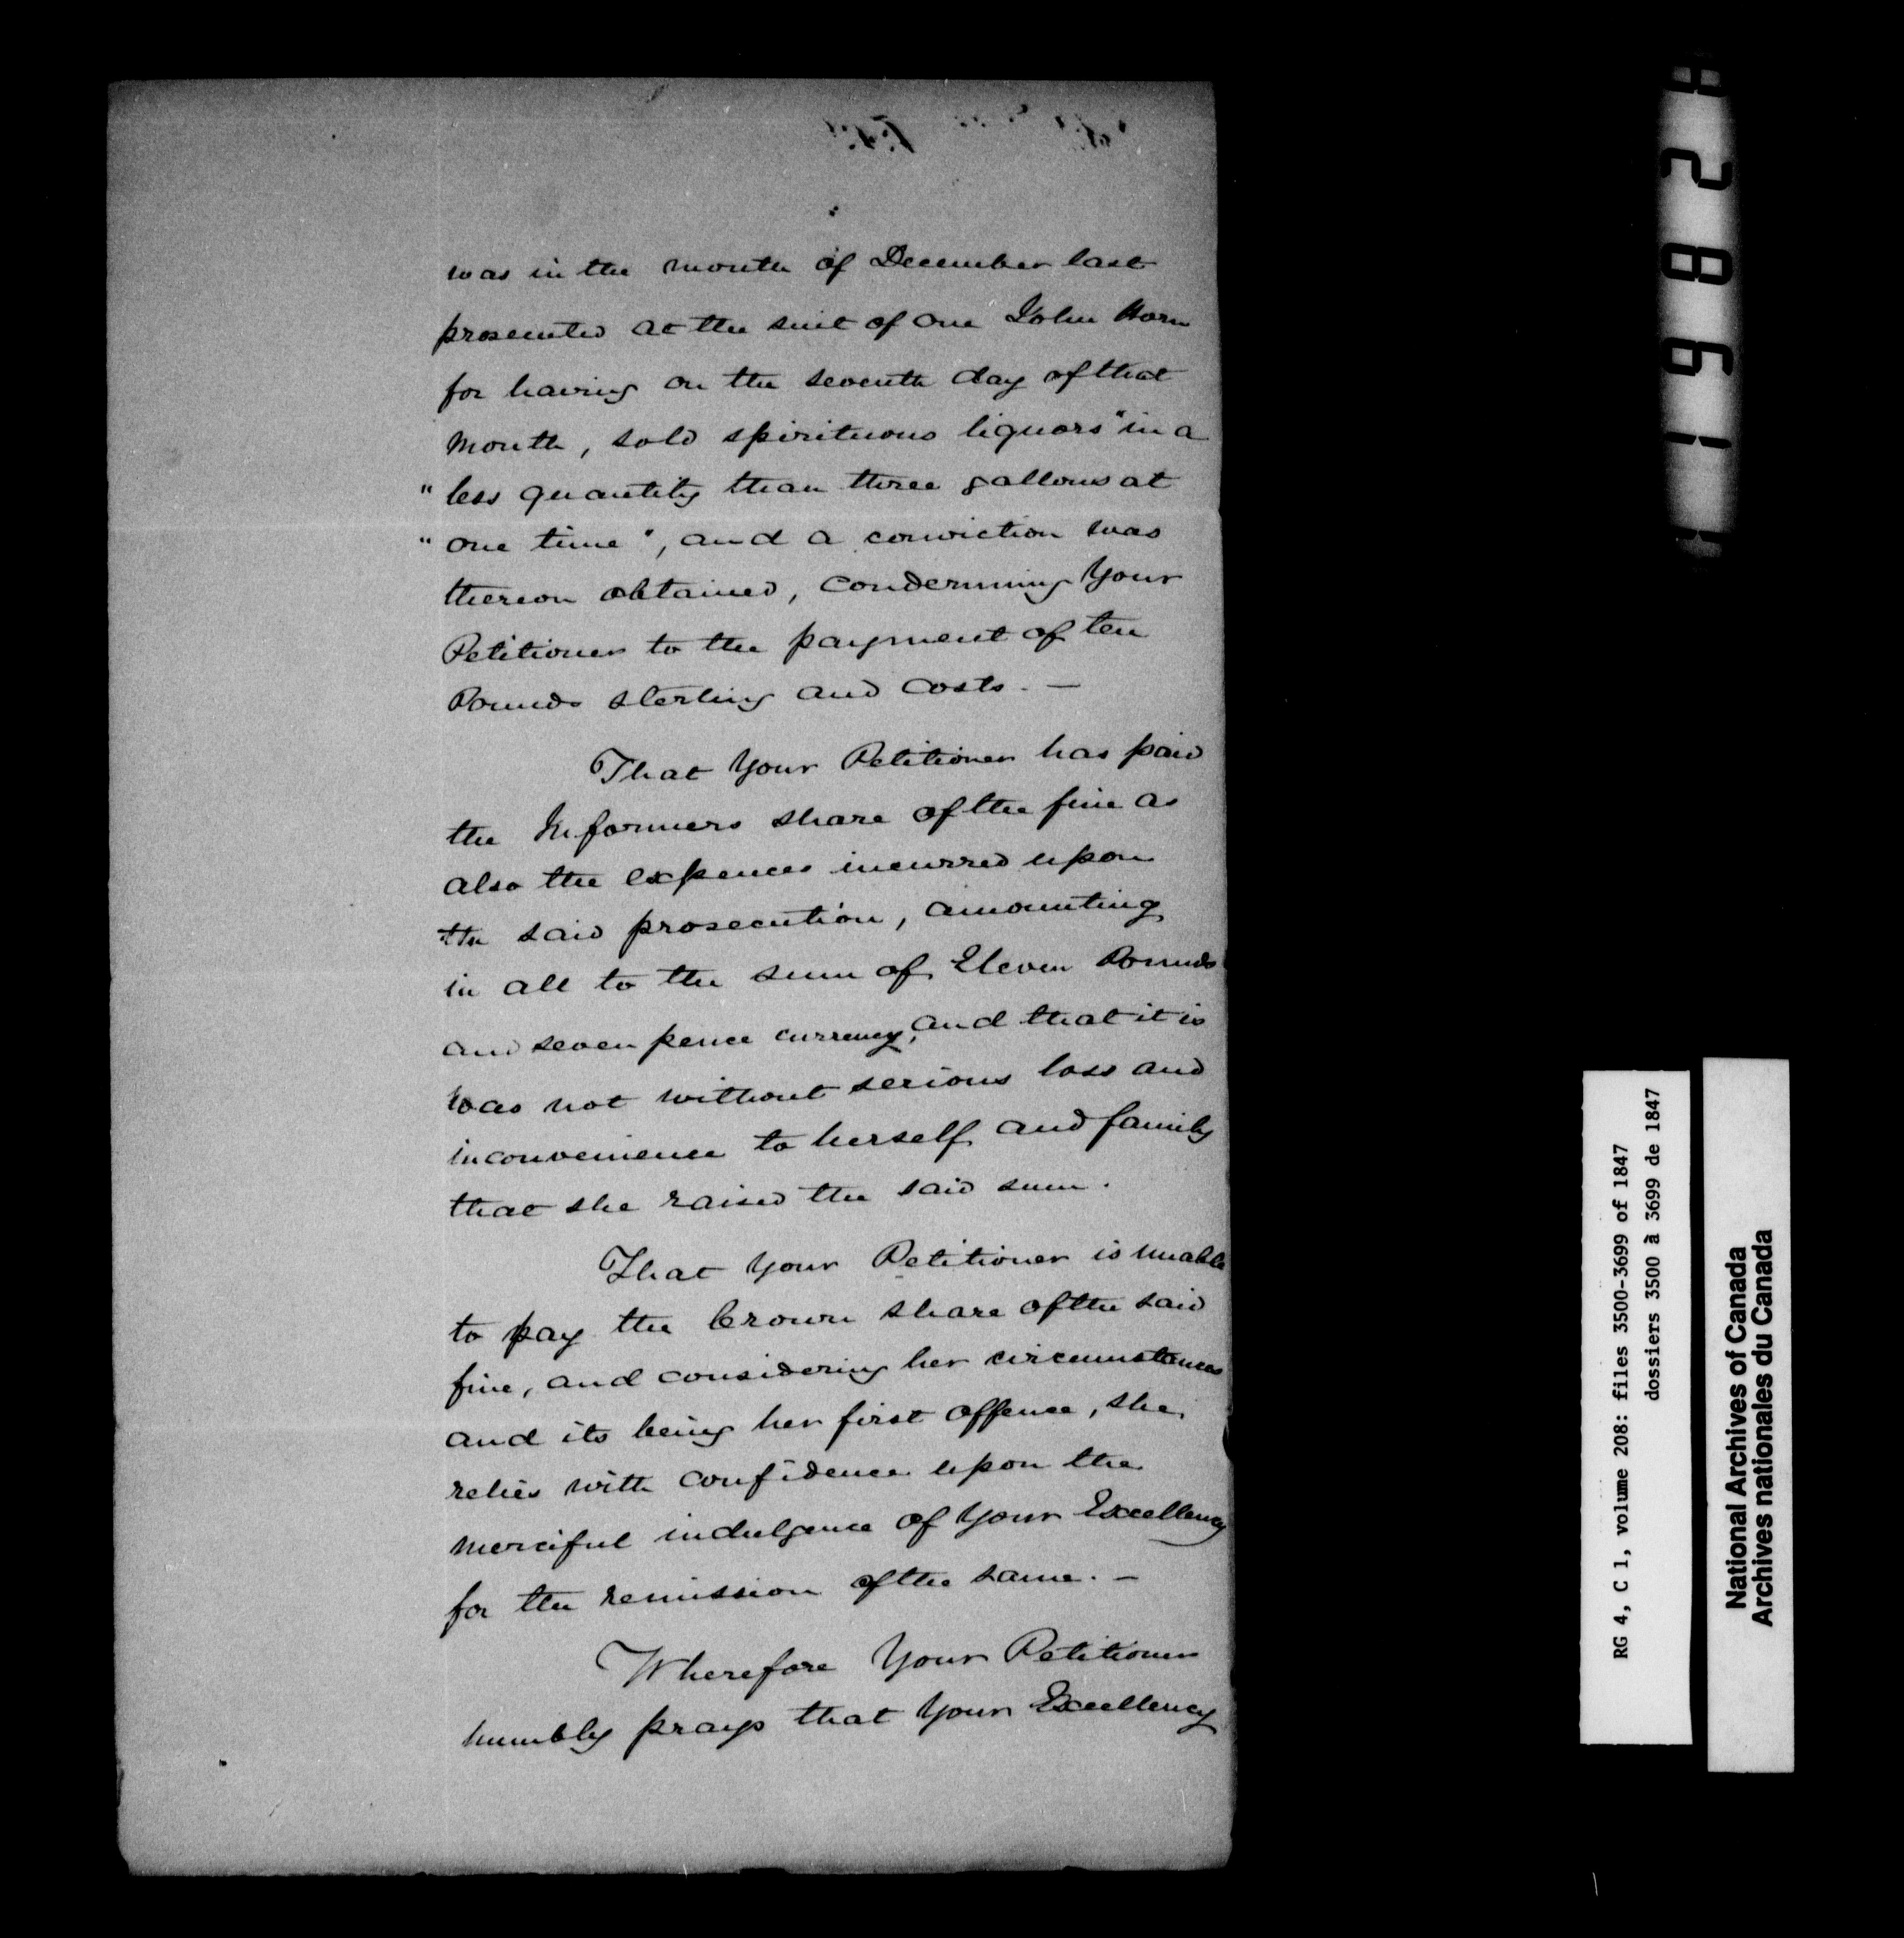 was in the month of December last
prosecuted at the suit of one John Horn
for having on the seventh day of that
month, sold spirituous liquors "in a
"less quantity than three gallons at
"one time", and a conviction was
thereon obtained, condemning Your
Petitioner to the payment of ten
Pounds sterling and costs. —
That Your Petitioner has paid
the Informers share of the fine as
also the expences incurred upon
the said prosecution, amounting
in all to the sum of Eleven Pounds
and seven pence currency, and that it is
was not without serious loss and
inconvenience to herself and family
that she raised the said sum.
That Your Petitioner is unable
to pay the Crown share of the said
fine, and considering her circumstances
and its being her first offence, she
relies with confidence upon the
merciful indulgence of Your Excellency
for the remission of the same. —
Wherefore Your Petitioner
humbly prays that Your Excellency
1682
RG 4, C 1, volume 208: files 3500-3699 of 1847
dossiers 3500 à 3699 de 1847
National Archives of Canada
Archives nationales du Canada